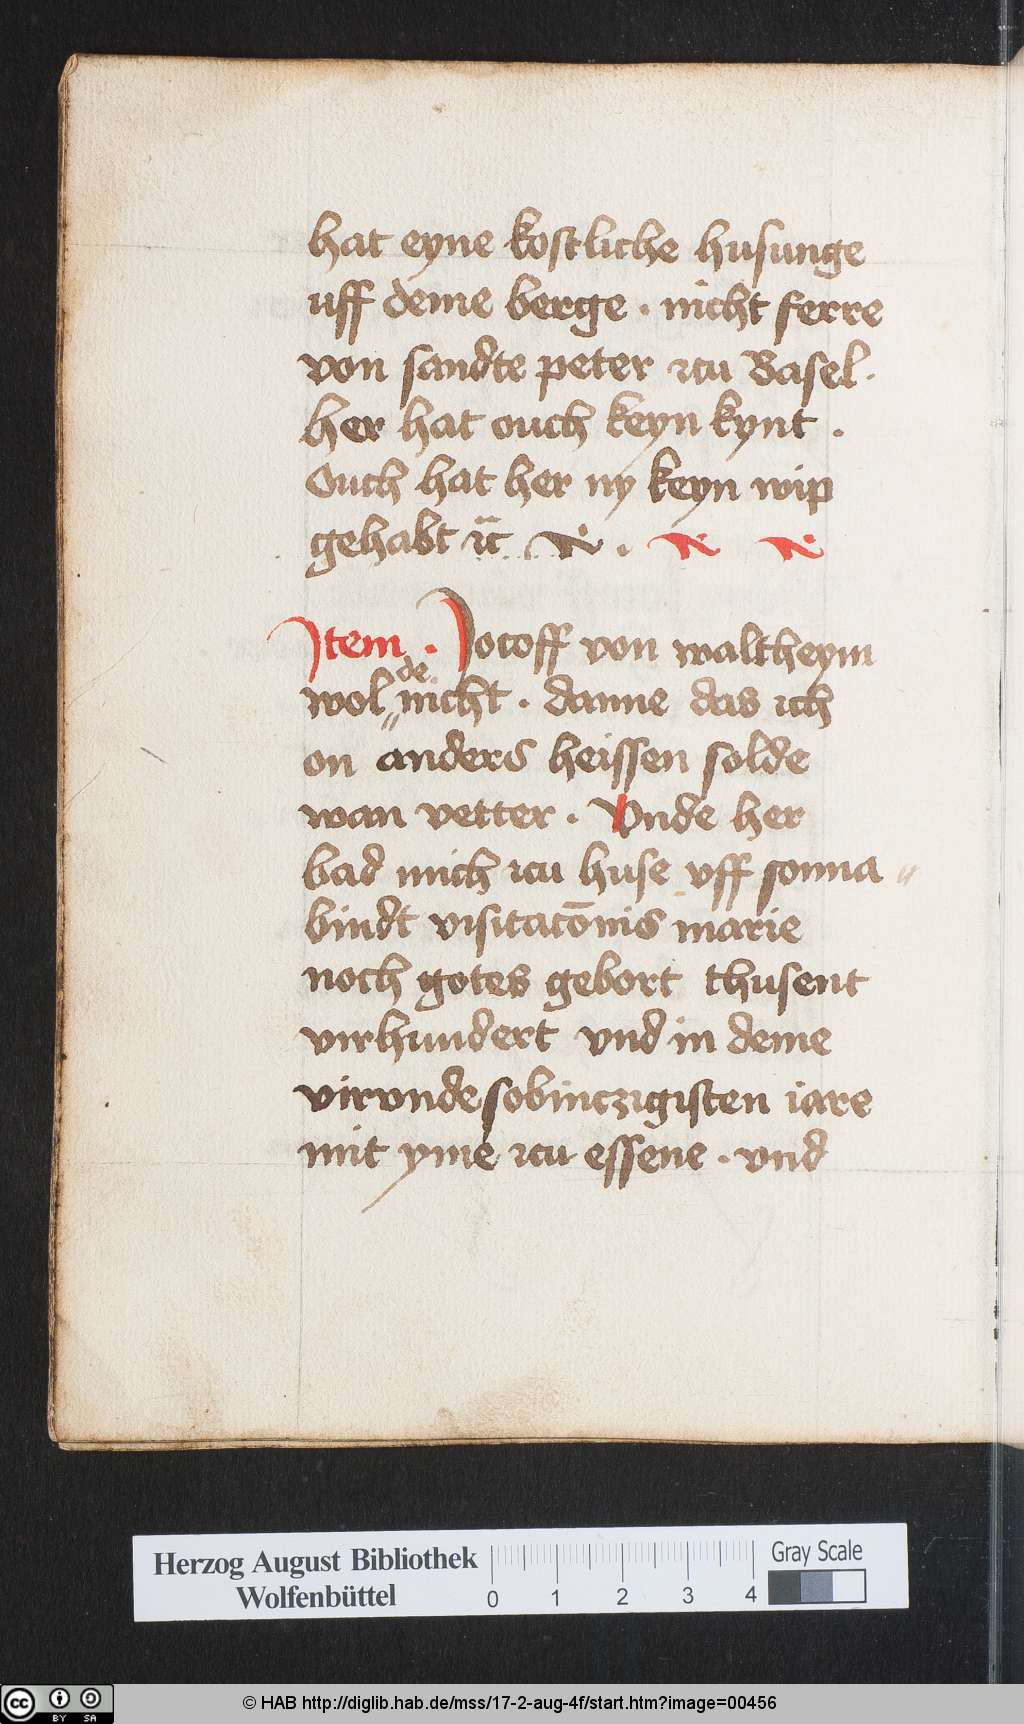 hat eyne kostliche husunge
uff deme berge . nicht ferre
von sandte peter zcu Basel .
her hat ouch keyn kynt .
Ouch hat her ny keyn wip
gehabt
Item . Jocoff von waltheym
wolde nicht . danne das ich
on anders heissen solde
wan vetter . Unde her
bad mich zcu huse uff sonna〃
bindt visitacōnis marie
noch gotes gebort thusent
virhundert vnd in deme
virvndesobinczigisten iare
mit yme zcu essene . vnd
Herzog August Bibliothek
Wolfenbüttel
0 1 2 3 4
Gray Scale
cc BY SA
© HAB http://diglib.hab.de/mss/17-2-aug-4f/start.htm?image=00456